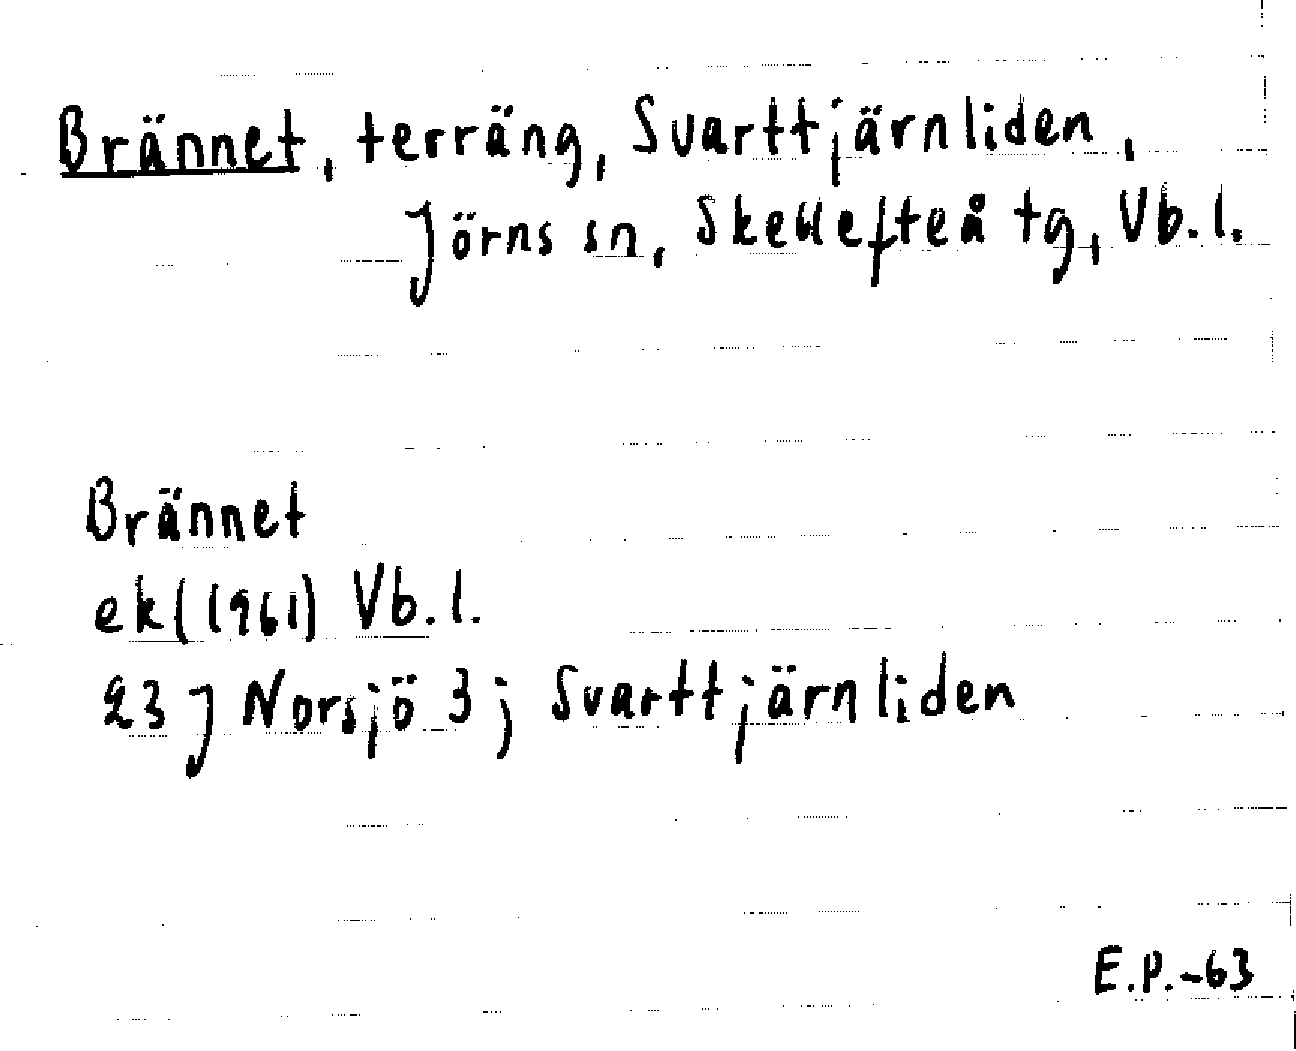 Brännet, terräng, Svarttjärnliden,
Jörns sn, Skellefteå tg, Vb.l.
Brännet
ek(1961) Vb.l.
23 J Norsjö 3 j Svarttjärnliden
E.P.-63